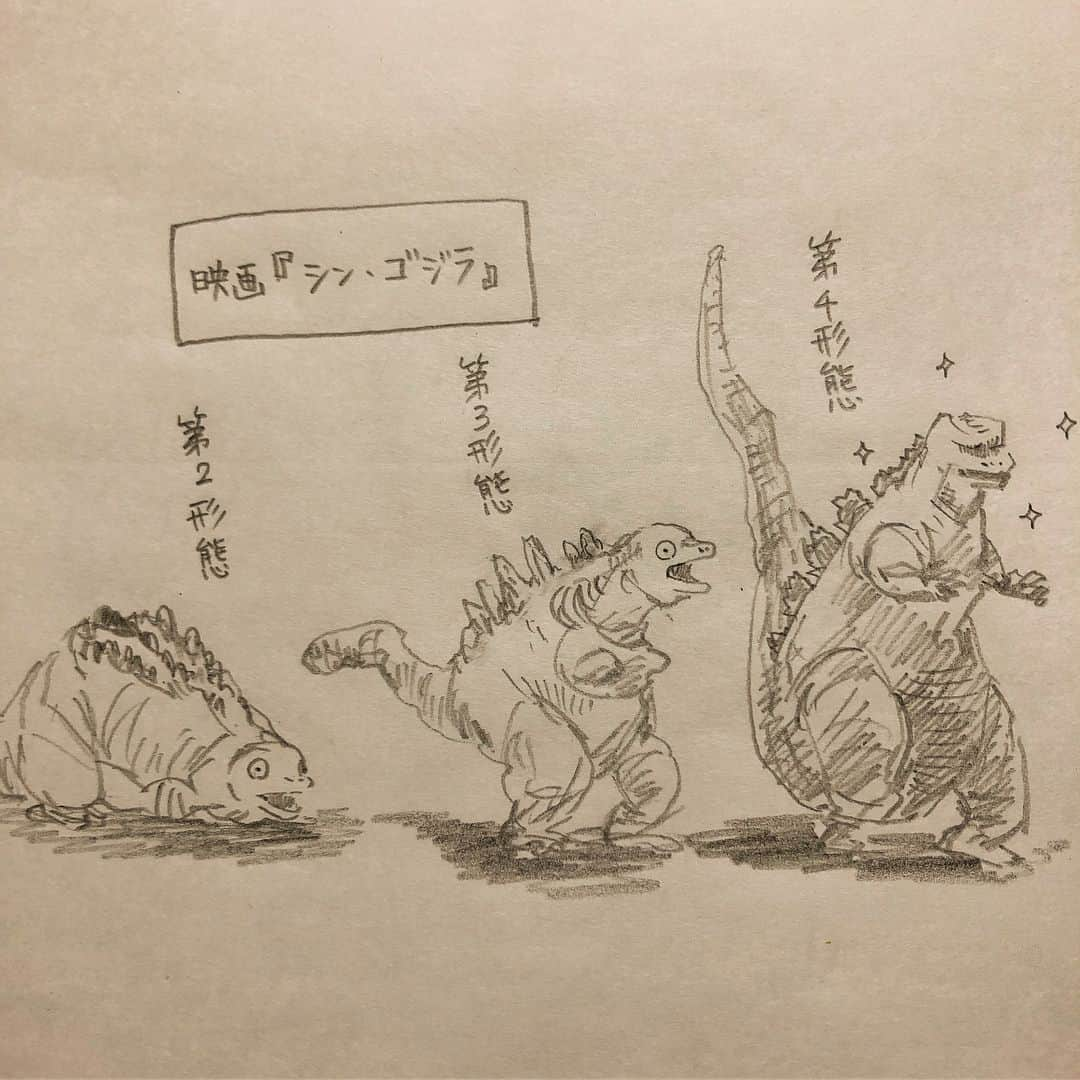 映画『シン、ゴジラ』
第2形態
第3形態
第4形態